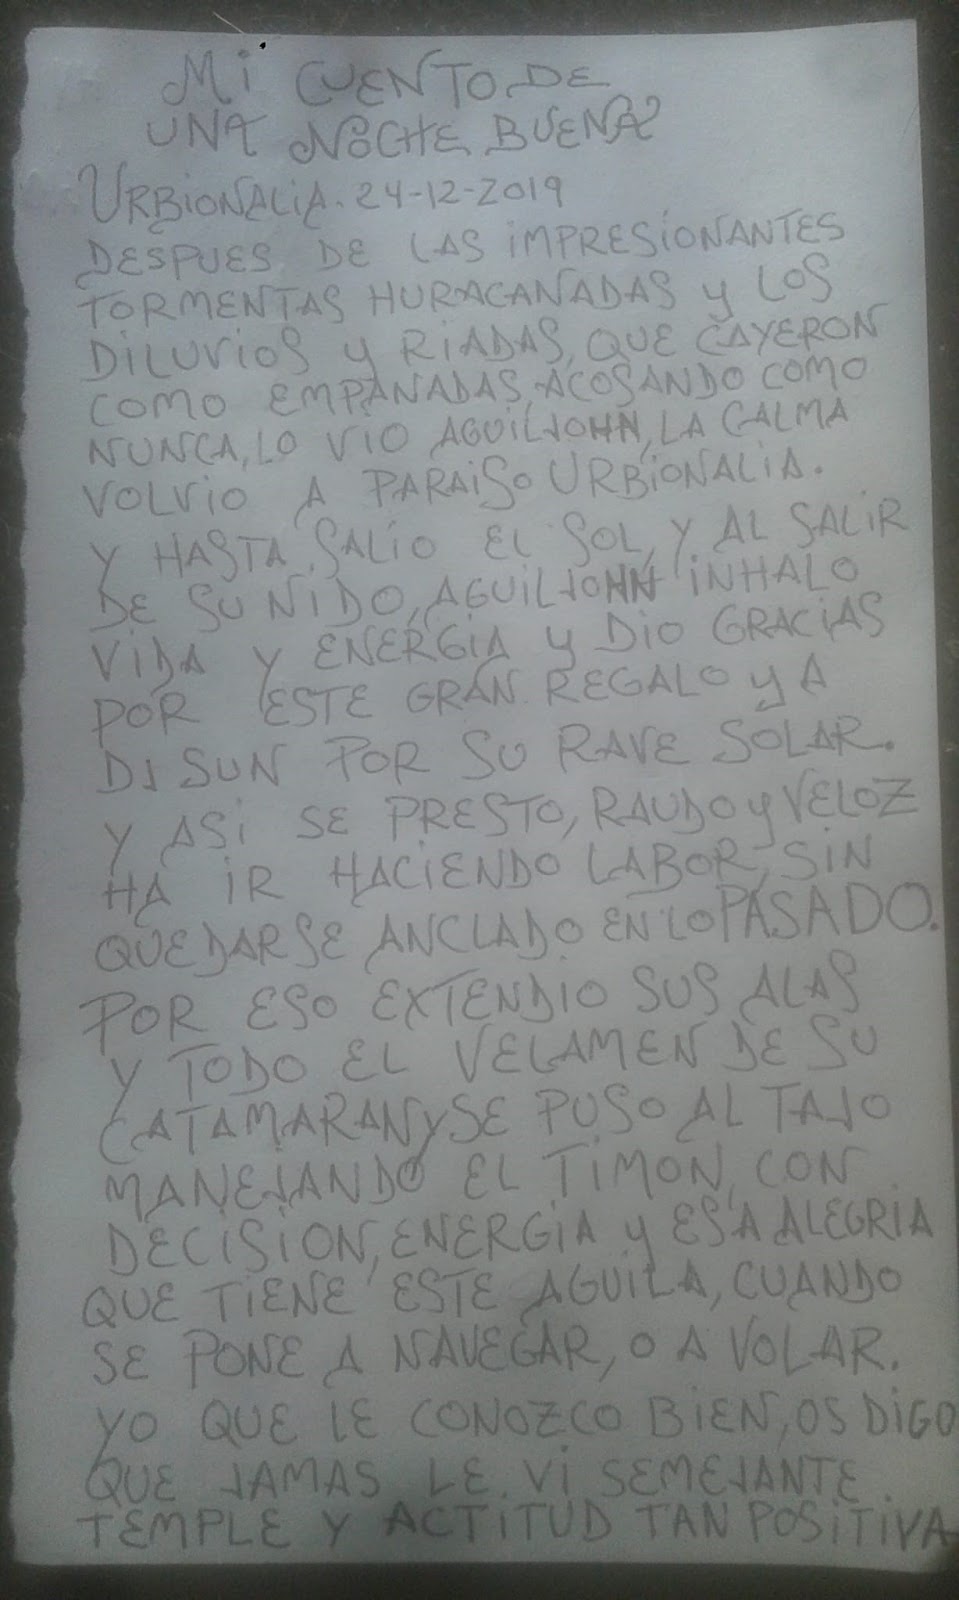 Mi CUENTO DE
UNA NOCHE BUENA
URBiONALiA. 24-12-2019
DESPUES DE LAS iMPRESiONANTES
TORMENTAS HURACANADAS y LOS
DiLUViOS y RiADAS, QUE CAYERON
COMO EMPANADAS, ACOSANDO COMO
NUNCA, LO VIO AGUILJOHN, LA CALMA
VOLViO A PARAiSO URBiONALiA.
Y HASTA SALíO EL SOL, Y AL SALiR
DE SU NiDO, AGUILJOHN iNHALO
ViDA Y ENERGiA y DiO GRACiAS
POR ESTE GRAN REGALO y A
DJ SUN POR SU RAVE SOLAR.
Y ASi SE PRESTO, RAUDO y VELOZ
HA IR HACiENDO LABOR, SiN
QUEDARSE ANCLADO EN LO PASADO.
POR ESO EXTENDiO SUS ALAS
Y TODO EL VELAMEN DE SU
CATAMARAN y SE PUSO AL TAJO
MANEJANDO EL TiMON, CON
DECiSiON, ENERGiA y ESA ALEGRiA
QUE TiENE ESTE AGUiLA, CUANDO
SE PONE A NAVEGAR, O A VOLAR.
YO QUE LE CONOZCO BiEN, OS DiGO
QUE JAMAS LE Vi SEMEJANTE
TEMPLE Y ACTiTUD TAN POSiTiVA